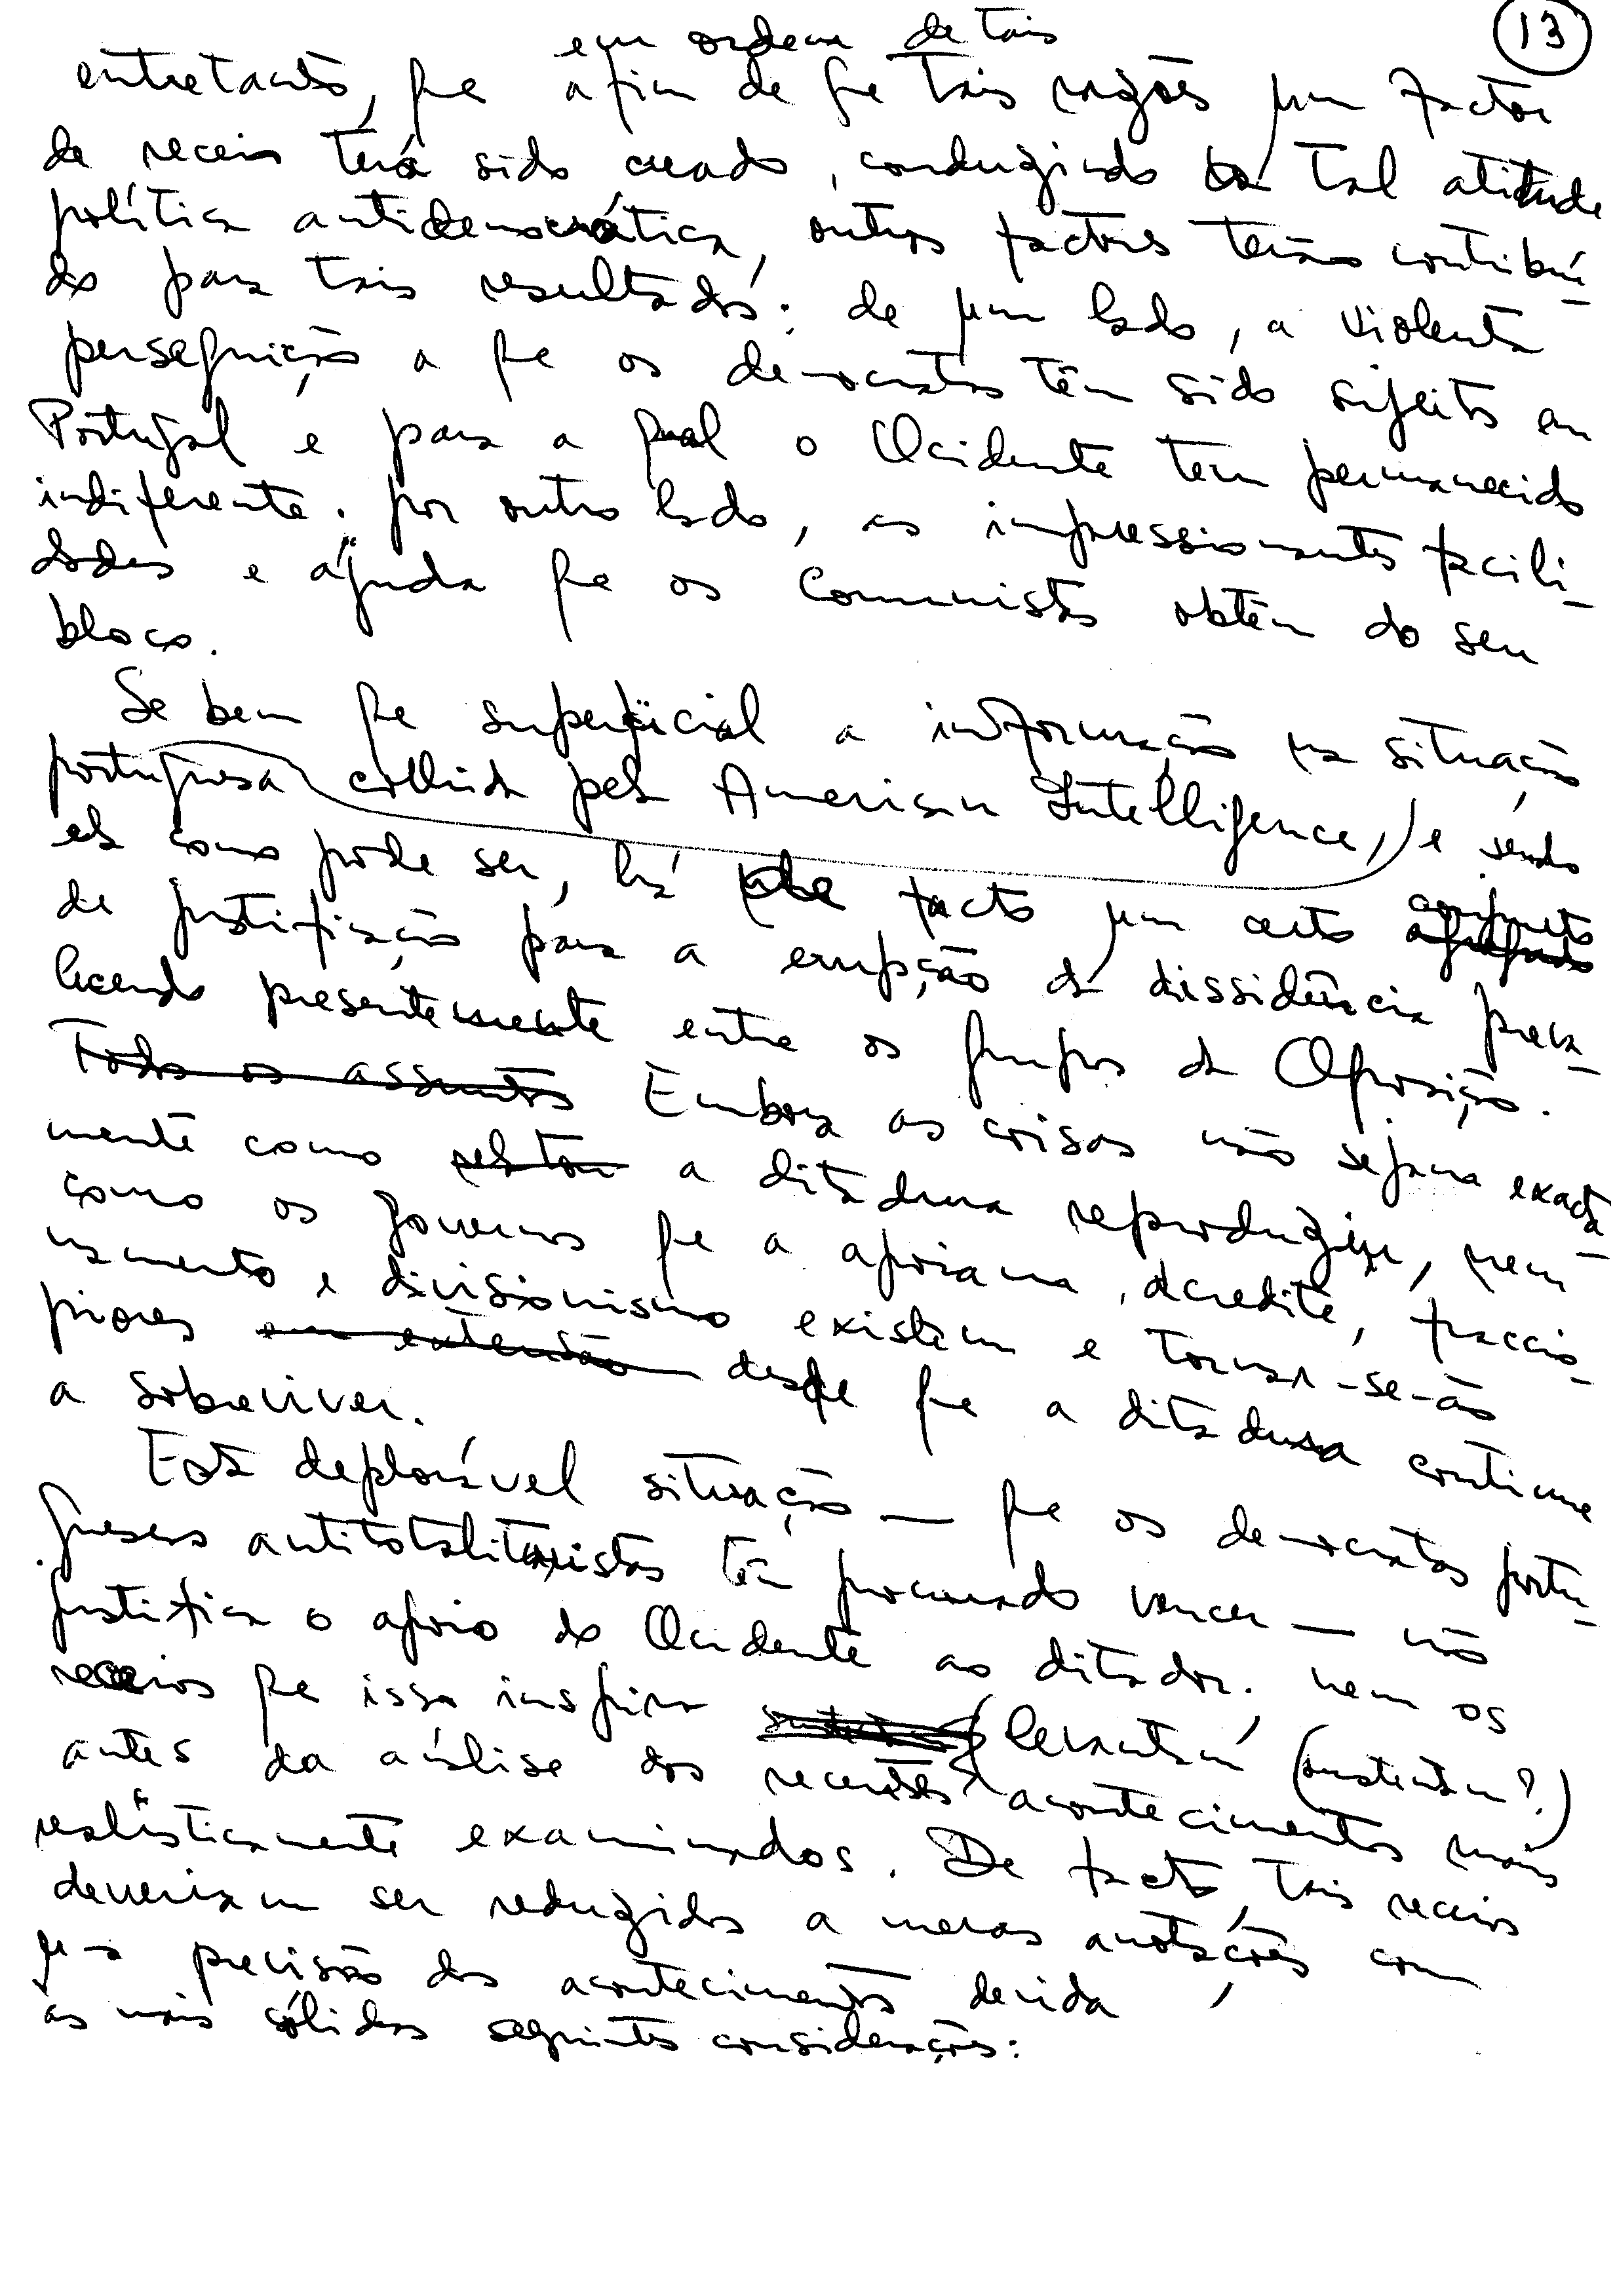 13
em ordem de tais
entretanto, que afim de que tais razões um factor
de receio terá sido creado, conduzindo a tal atitude
política antidemocrática, outros factores terão contribuí-
do para tais resultados: de um lado, a violenta
perseguição a que os democratas têm sido sujeitos em
Portugal e para a qual o Ocidente tem permanecido
indiferente. por outro lado, as impressionantes facili-
dades e ajuda que os Comunistas obtêm do seu
bloco.
Se bem que superficial a informação na situação
portuguesa colhida pela American Intelligence, e sendo
ela como pode ser, há de facto um certo
de justificação para a erupção da dissidência preva-
lecendo presentemente entre os grupos da Oposição.
Todos os assuntos Embora as coisas não sejam exacta-
mente como a ditadura reproduzir, nem
como os governos que a apoiam, acredite, faccio-
namento e divisionismo existem e tornar-se-ão
piores em extensão desde que a ditadura continue
a sobreviver.
Esta deplorável situação — que os democratas portu-
gueses antitotalitaristas têm procurado vencer — não
justifica o apoio do Ocidente ao ditador. nem os
receios que isso inspira levantam (sustentam?)
antes da análise dos recentes acontecimentos mais
realísticamente examinados. De facto, tais receios
deveriam ser reduzidos a meras anotações com
precisão dos acontecimentos devida
às mais sólidas seguintes considerações: